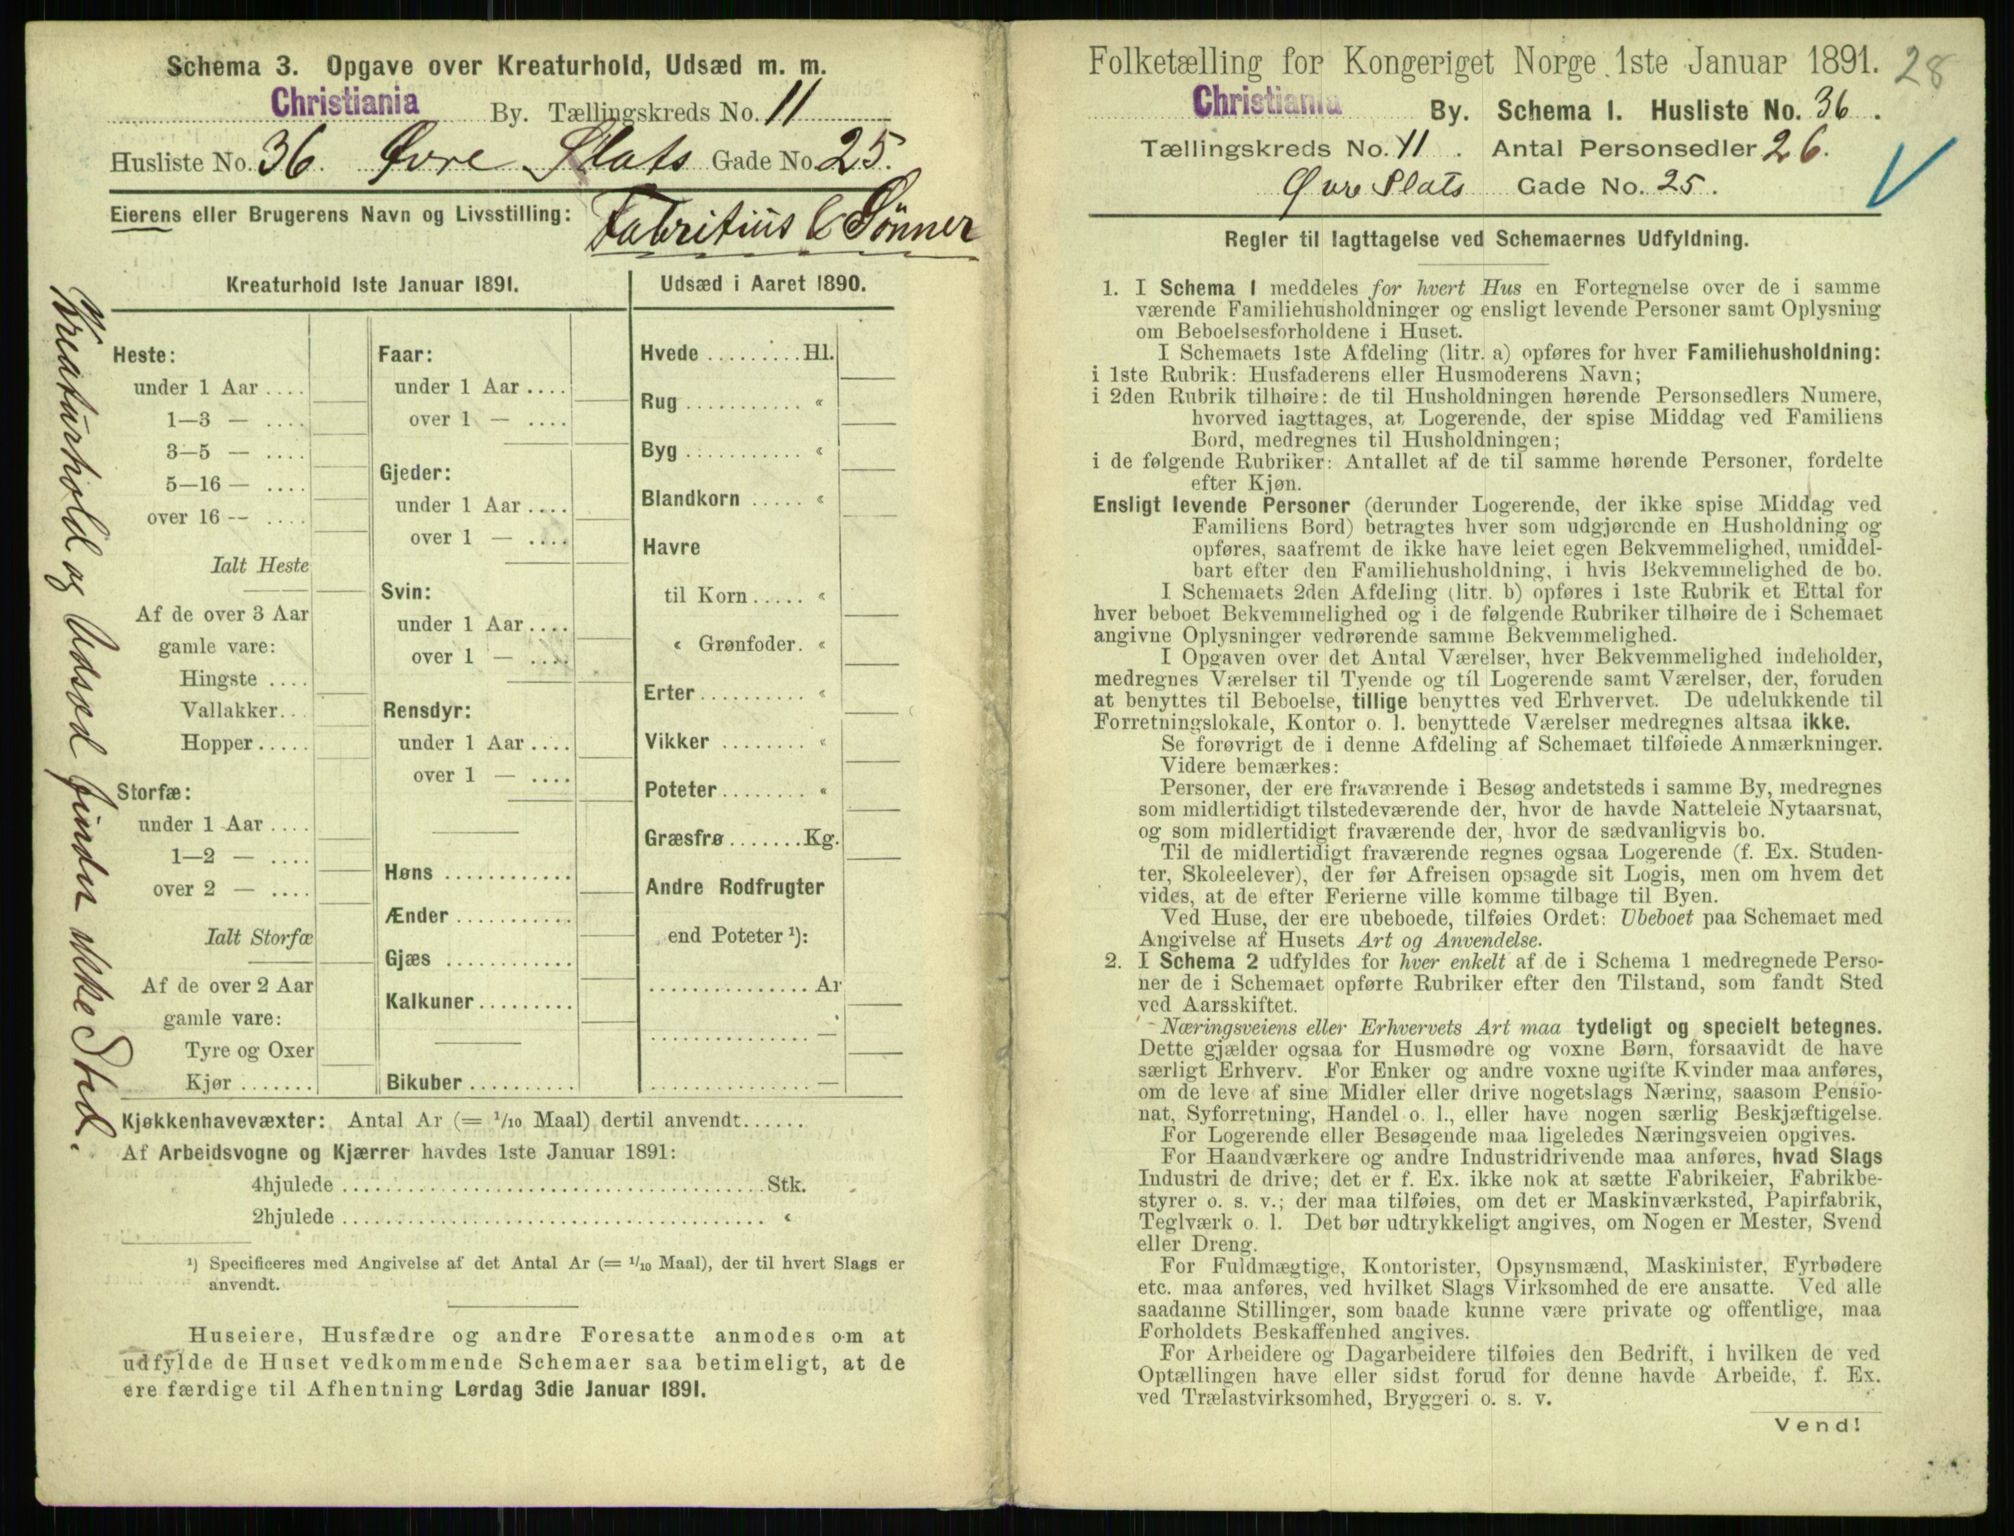 Schema 3. Opgave over Kreaturhold, Udsæd m. m.
Christiania By. Tællingskreds No. 11
Husliste No. 36. Øvre Slots Gade No. 25.
Eierens eller Brugerens Navn og Livsstilling: Fabritius & Sønner
Kreaturhold og Udsæd finder ikke Sted.
Kreaturhold 1ste Januar 1891.
Heste:
under 1 Aar ....
1—3 — ....
3—5 — ....
5—16 — ....
over 16 -- ....
Ialt Heste
Af de over 3 Aar
gamle vare:
Hingste ....
Vallakker...
Hopper.....
Storfæ:
under 1 Aar ....
1—2 — ....
over 2 — ....
Ialt Storfæ
Af de over 2 Aar
gamle vare:
Tyre og Oxer
Kjør .......
Faar:
under 1 Aar ....
over 1 — ....
Gjeder:
under 1 Aar ....
over 1 — ....
Svin:
under 1 Aar ....
over 1 — ....
Rensdyr:
under 1 Aar ....
over 1 — ....
Høns ............
Ænder ...........
Gjæs ............
Kalkuner.........
Bikuber ..........
Udsæd i Aaret 1890.
Hvede .........Hl.
Rug ........... «
Byg ........... «
Blandkorn ..... «
Havre
til Korn..... «
« Grønfoder. «
Erter.......... «
Vikker ........ «
Poteter........ «
Græsfrø .......Kg.
Andre Rodfrugter
end Poteter ¹):
............... Ar
............... —
............... —
Kjøkkenhavevæxter: Antal Ar (= 1/10 Maal) dertil anvendt......
Af Arbeidsvogne og Kjærrer havdes 1ste Januar 1891:
4hjulede ........................................Stk.
2hjulede ........................................ «
¹) Specificeres med Angivelse af det Antal Ar (= 1/10 Maal), der til hvert Slags er
anvendt.
Huseiere, Husfædre og andre Foresatte anmodes om at
udfylde de Huset vedkommende Schemaer saa betimeligt, at de
ere færdige til Afhentning Lørdag 3die Januar 1891.
Folketælling for Kongeriget Norge 1ste Januar 1891. 28
Christiania By. Schema I. Husliste No. 36.
Tællingskreds No. 11. Antal Personsedler 26.
Øvre Slots Gade No. 25.
Regler til Iagttagelse ved Schemaernes Udfyldning.
1. I Schema 1 meddeles for hvert Hus en Fortegnelse over de i samme
værende Familiehusholdninger og ensligt levende Personer samt Oplysning
om Beboelsesforholdene i Huset.
I Schemaets 1ste Afdeling (litr. a) opføres for hver Familiehusholdning:
i 1ste Rubrik: Husfaderens eller Husmoderens Navn;
i 2den Rubrik tilhøire: de til Husholdningen hørende Personsedlers Numere,
hvorved iagttages, at Logerende, der spise Middag ved Familiens
Bord, medregnes til Husholdningen;
i de følgende Rubriker: Antallet af de til samme hørende Personer, fordelte
efter Kjøn.
Ensligt levende Personer (derunder Logerende, der ikke spise Middag ved
Familiens Bord) betragtes hver som udgjørende en Husholdning og
opføres, saafremt de ikke have leiet egen Bekvemmelighed, umiddel-
bart efter den Familiehusholdning, i hvis Bekvemmelighed de bo.
I Schemaets 2den Afdeling (litr. b) opføres i 1ste Rubrik et Ettal for
hver beboet Bekvemmelighed og i de følgende Rubriker tilhøire de i Schemaet
angivne Oplysninger vedrørende samme Bekvemmelighed.
I Opgaven over det Antal Værelser, hver Bekvemmelighed indeholder,
medregnes Værelser til Tyende og til Logerende samt Værelser, der, foruden
at benyttes til Beboelse, tillige benyttes ved Erhvervet. De udelukkende til
Forretningslokale, Kontor o. l. benyttede Værelser medregnes altsaa ikke.
Se forøvrigt de i denne Afdeling af Schemaet tilføiede Anmærkninger.
Videre bemærkes:
Personer, der ere fraværende i Besøg andetsteds i samme By, medregnes
som midlertidigt tilstedeværende der, hvor de havde Natteleie Nytaarsnat,
og som midlertidigt fraværende der, hvor de sædvanligvis bo.
Til de midlertidigt fraværende regnes ogsaa Logerende (f. Ex. Studen-
ter, Skoleelever), der før Afreisen opsagde sit Logis, men om hvem det
vides, at de efter Ferierne ville komme tilbage til Byen.
Ved Huse, der ere ubeboede, tilføies Ordet: Ubeboet paa Schemaet med
Angivelse af Husets Art og Anvendelse.
2. I Schema 2 udfyldes for hver enkelt af de i Schema 1 medregnede Perso-
ner de i Schemaet opførte Rubriker efter den Tilstand, som fandt Sted
ved Aarsskiftet.
Næringsveiens eller Erhvervets Art maa tydeligt og specielt betegnes.
Dette gjælder ogsaa for Husmødre og voxne Børn, forsaavidt de have
særligt Erhverv. For Enker og andre voxne ugifte Kvinder maa anføres,
om de leve af sine Midler eller drive nogetslags Næring, saasom Pensio-
nat, Syforretning, Handel o. l., eller have nogen særlig Beskjæftigelse.
For Logerende eller Besøgende maa ligeledes Næringsveien opgives.
For Haandværkere og andre Industridrivende maa anføres, hvad Slags
Industri de drive; det er f. Ex. ikke nok at sætte Fabrikeier, Fabrikbe-
styrer o. s. v.; der maa tilføies, om det er Maskinværksted, Papirfabrik,
Teglværk o. l. Det bør udtrykkeligt angives, om Nogen er Mester, Svend
eller Dreng.
For Fuldmægtige, Kontorister, Opsynsmænd, Maskinister, Fyrbødere
etc. maa anføres, ved hvilket Slags Virksomhed de ere ansatte. Ved alle
saadanne Stillinger, som baade kunne være private og offentlige, maa
Forholdets Beskaffenhed angives.
For Arbeidere og Dagarbeidere tilføies den Bedrift, i hvilken de ved
Optællingen have eller sidst forud for denne havde Arbeide, f. Ex.
ved Trælastvirksomhed, Bryggeri o. s. v.
Vend!